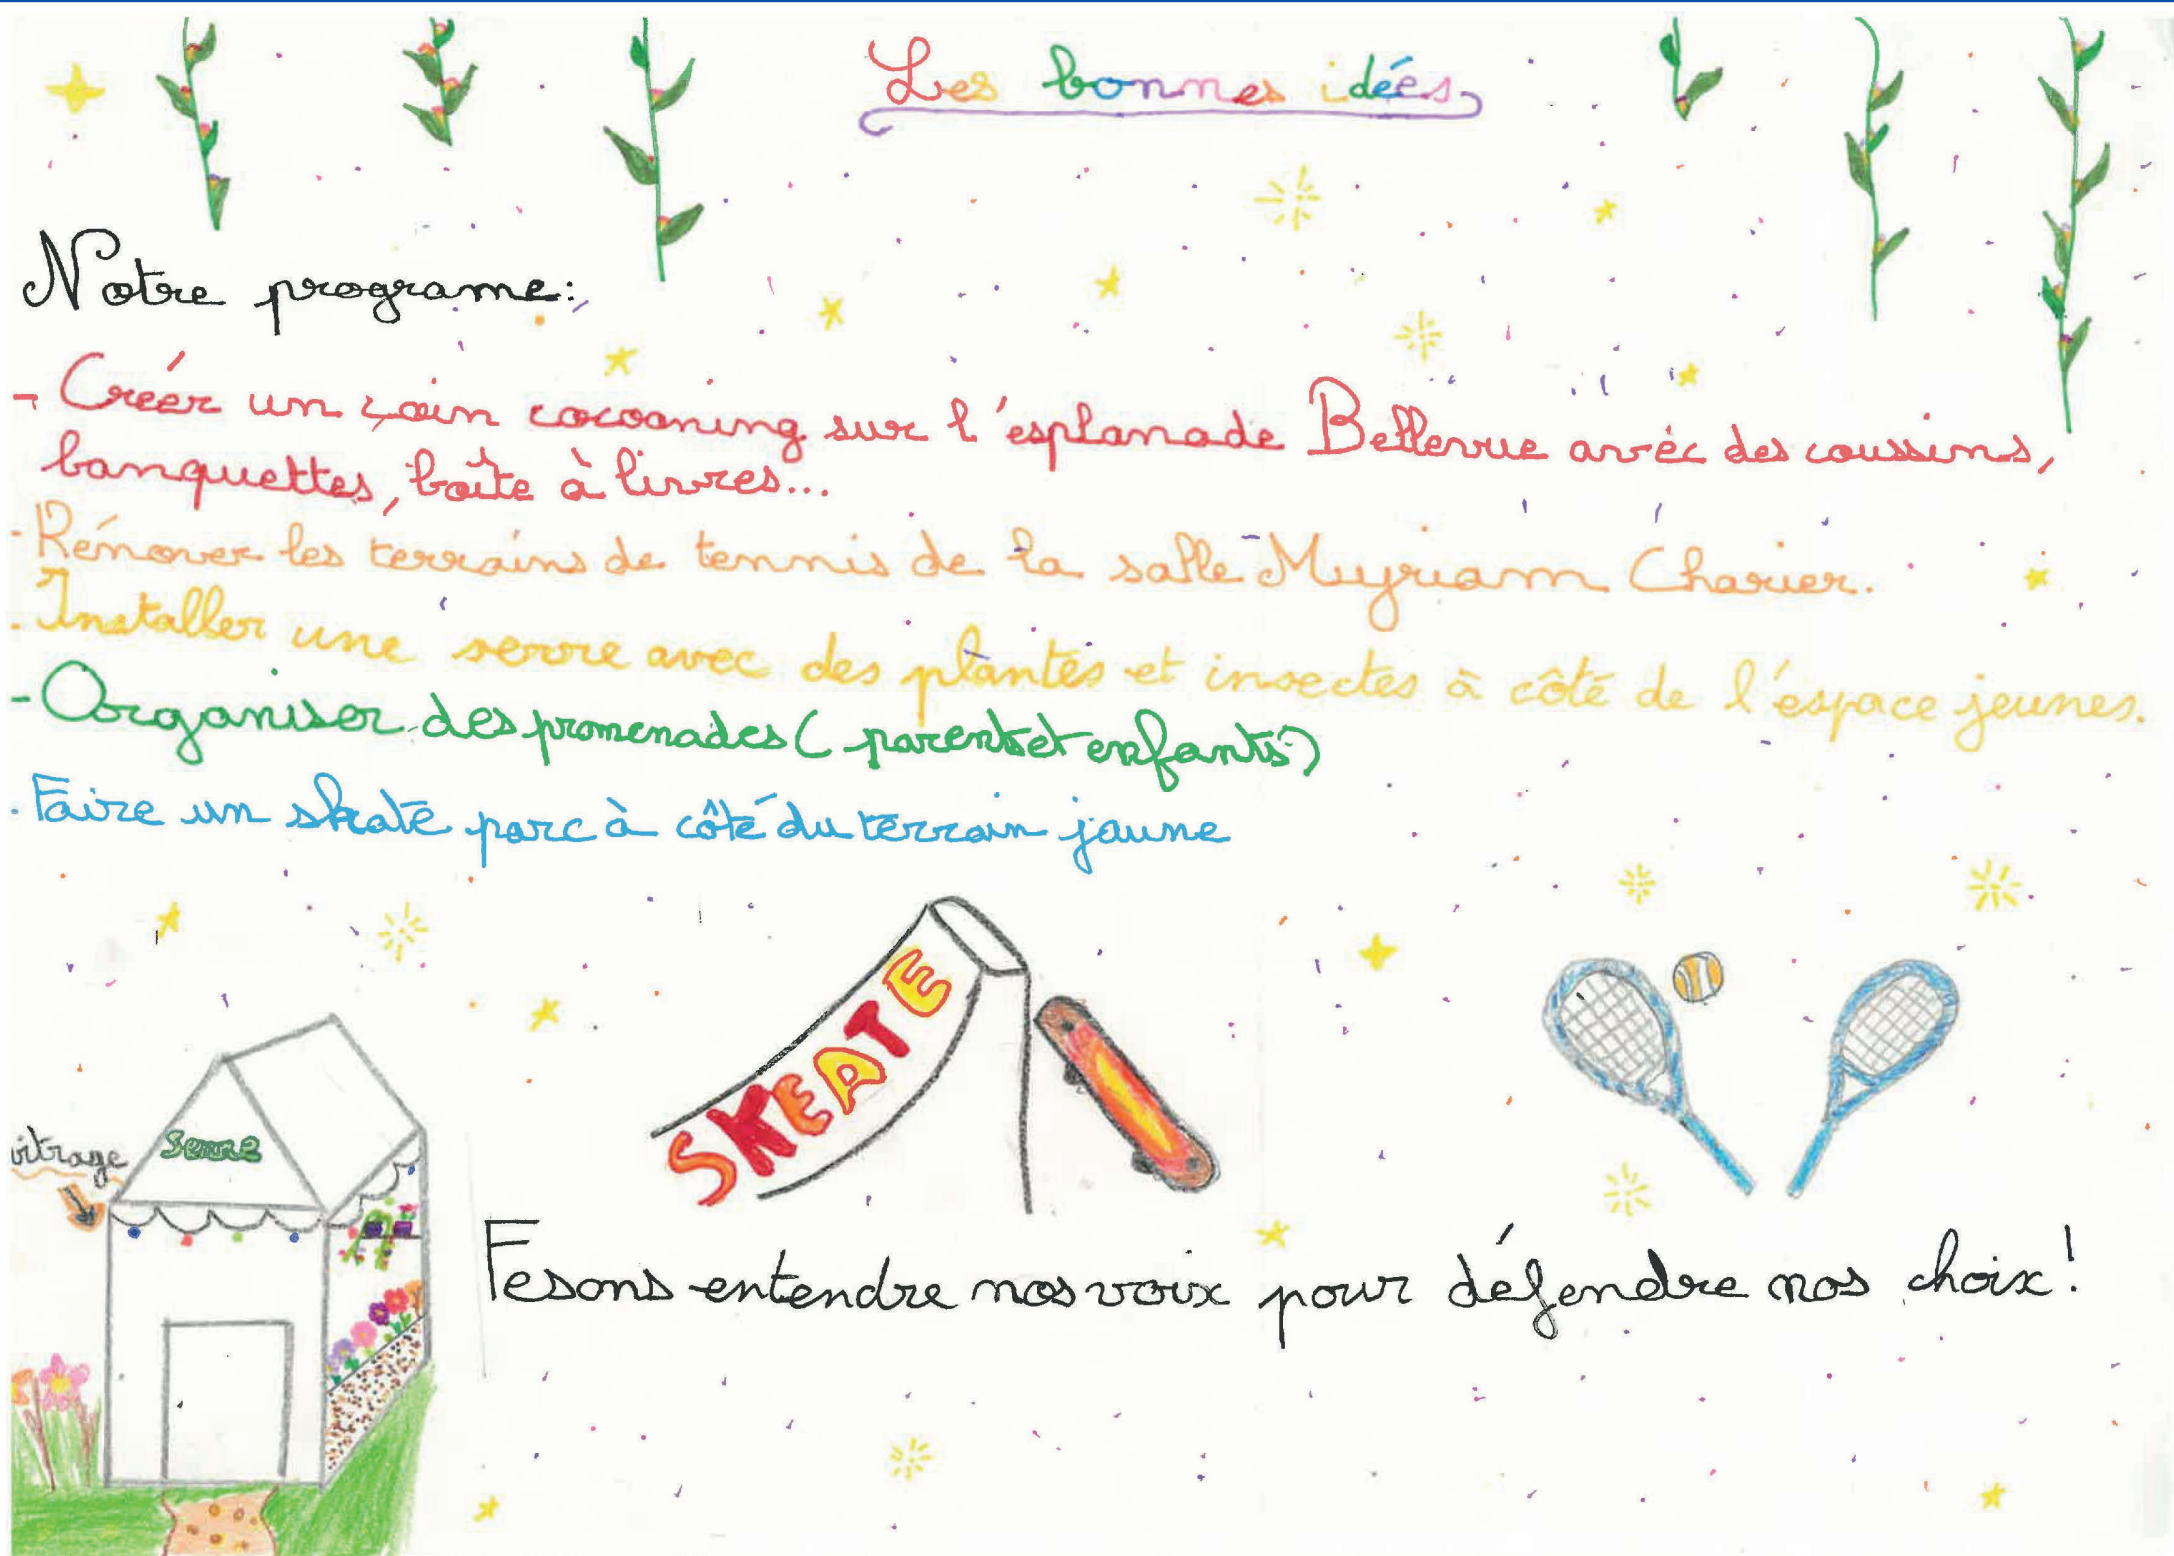 Les bonnes idées
Notre programe:
- Créer un coin cocooning sur l'esplanade Bellevue avec des coussins,
banquettes, boîte à livres...
- Rénover les terrains de tennis de la salle Myriam Charier.
- Installer une serre avec des plantes et insectes à côté de l'espace jeunes.
- Organiser des promenades (parents et enfants)
- Faire un skate parc à côté du terrain jaune
SKEATE
vitrage
Serre
Fesons entendre nos voix pour défendre nos choix!